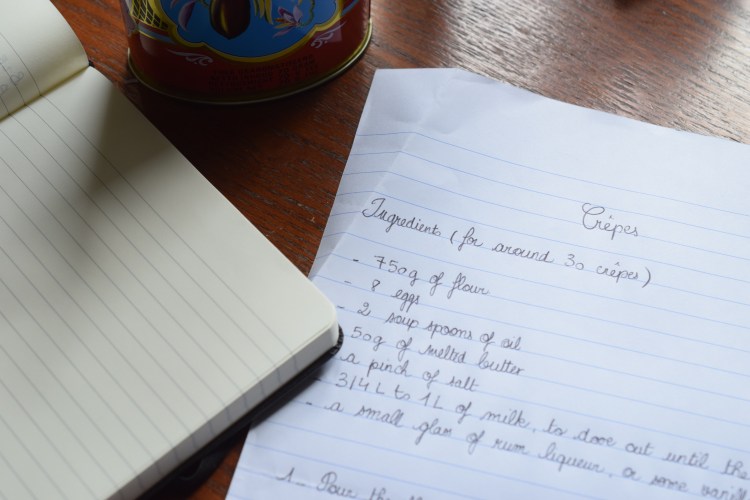 Crêpes
Ingredients (for around 30 crêpes)
- 750g of flour
- 8 eggs
- 2 soup spoons of oil
50g of melted butter
- a pinch of salt
- 3/4 L to 1L of milk, to dose out until the
- a small glass of rum liqueur, or some
1_ Pour the